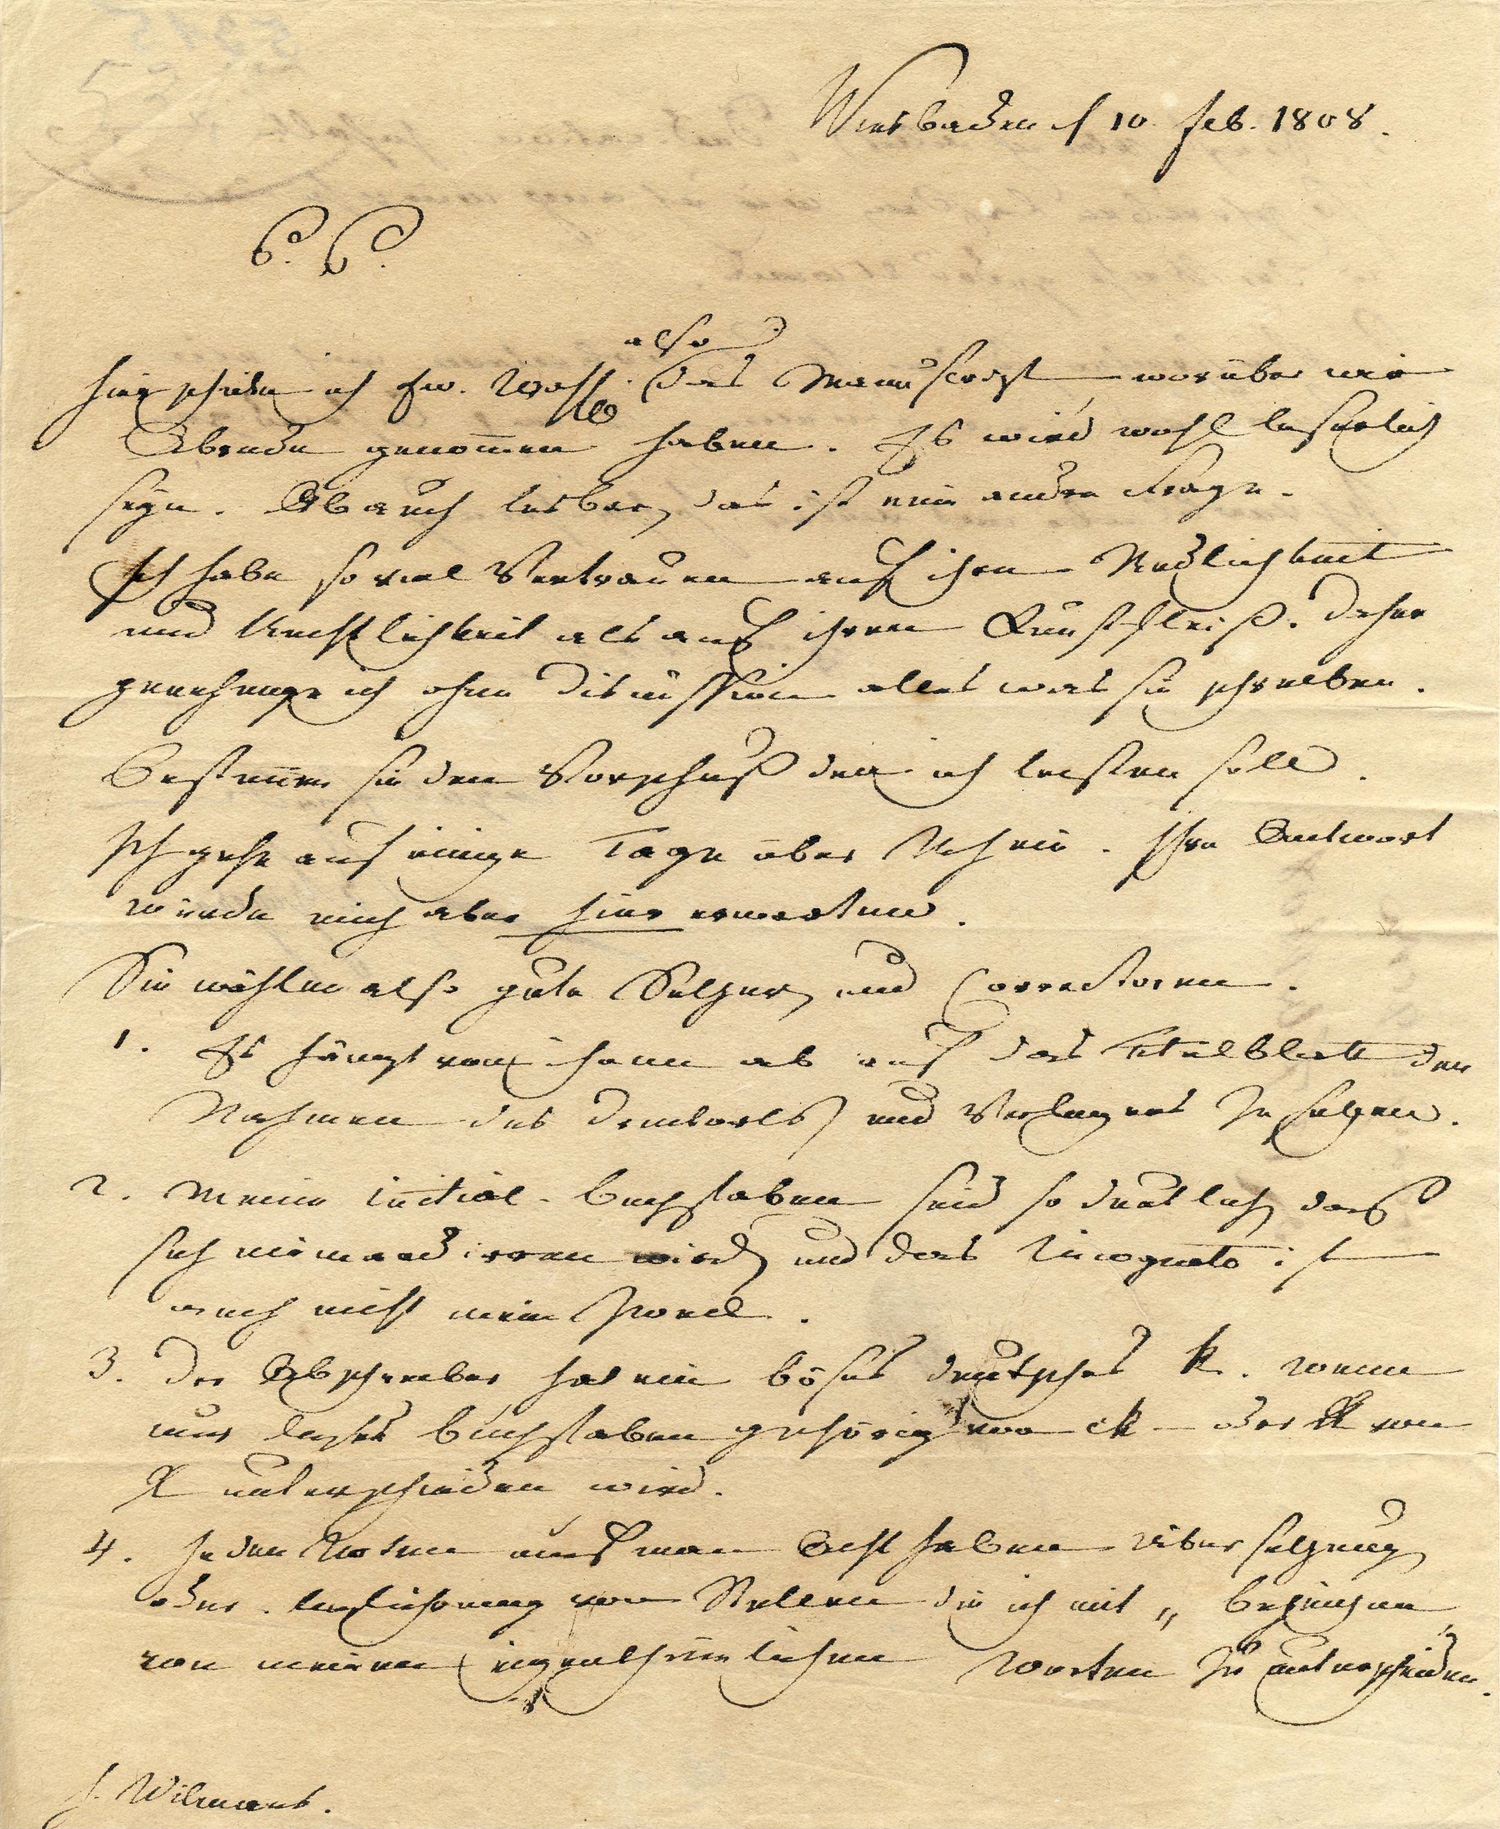 Wiesbaden d 10 Feb. 1808.
P. P.
also
hier schicke ich Ew. Wohlg. das Manuscript worüber wir
Abrede genom̅en haben. Es wird wohl leserlich
seyn. Ob auch lesbar, das ist eine andre Frage.
Ich habe so viel Vertrauen auf ihre Redlichkeit
und Rechtlichkeit als auf ihren Kunstfleiß. Daher
genehmige ich ohne Discussion alles was sie schreiben.
Bestim̅en sie den Vorschuß den ich leisten soll.
Ich gehe auf einige Tage über Rhein. Ihre Antwort
würde mich aber hier erwarten.
Sie wählen also gute Setzer, und Correctoren.
1. Es hängt von ihnen ab auf das Titelblatt den
Nahmen des Druckorts, und Verlegers zu setzen.
2. Meine Initial-Buchstaben sind so deutlich, dass
sich niemand irren wird, und das Incognito ist
auch nicht mein Zweck.
3. Der Abschreiber hat ein böses deutsches k. wenn
nur dieses Buchstaben gehörig von ck oder kk von
x unterschieden wird.
4. In den Noten muß man Acht haben Übersetzung,
oder Anführung von Stellen die ich mit „ bezeichne,
von meinen eigenthümlichen Worten zu unterscheiden.
H. Wilmans.